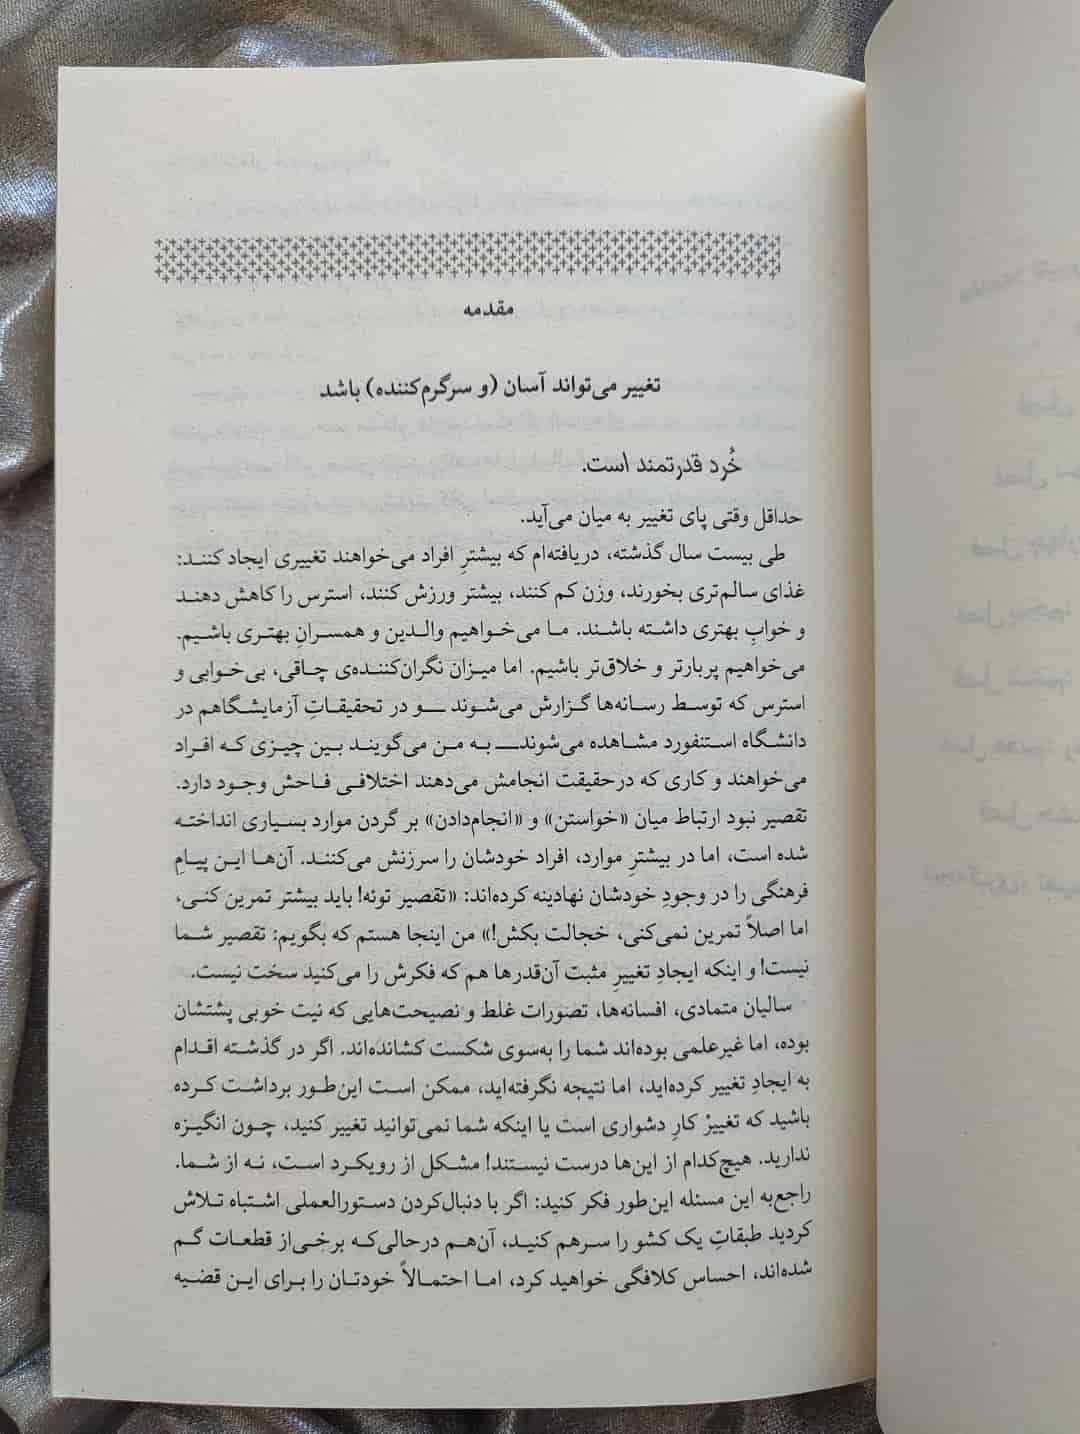 مقدمه
تغییر می‌تواند آسان (و سرگرم‌کننده) باشد
خُرد قدرتمند است.
حداقل وقتی پای تغییر به میان می‌آید.
طی بیست سال گذشته، دریافته‌ام که بیشترِ افراد می‌خواهند تغییری ایجاد کنند:
غذای سالم‌تری بخورند، وزن کم کنند، بیشتر ورزش کنند، استرس را کاهش دهند
و خوابِ بهتری داشته باشند. ما می‌خواهیم والدین و همسرانِ بهتری باشیم.
می‌خواهیم پربارتر و خلاق‌تر باشیم. اما میزان نگران‌کننده‌ی چاقی، بی‌خوابی و
استرس که توسط رسانه‌ها گزارش می‌شوند ــ و در تحقیقاتِ آزمایشگاهم در
دانشگاه استنفورد مشاهده می‌شوند ــ به من می‌گویند بین چیزی که افراد
می‌خواهند و کاری که درحقیقت انجامش می‌دهند اختلافی فاحش وجود دارد.
تقصیر نبود ارتباط میان «خواستن» و «انجام‌دادن» بر گردن موارد بسیاری انداخته
شده است، اما در بیشترِ موارد، افراد خودشان را سرزنش می‌کنند. آن‌ها این پیامِ
فرهنگی را در وجودِ خودشان نهادینه کرده‌اند: «تقصیر توئه! باید بیشتر تمرین کنی،
اما اصلاً تمرین نمی‌کنی، خجالت بکش!» من اینجا هستم که بگویم: تقصیر شما
نیست! و اینکه ایجادِ تغییرِ مثبت آن‌قدرها هم که فکرش را می‌کنید سخت نیست.
سالیان متمادی، افسانه‌ها، تصورات غلط و نصیحت‌هایی که نیت خوبی پشتشان
بوده، اما غیرعلمی بوده‌اند شما را به‌سوی شکست کشانده‌اند. اگر در گذشته اقدام
به ایجادِ تغییر کرده‌اید، اما نتیجه نگرفته‌اید، ممکن است این‌طور برداشت کرده
باشید که تغییرْ کارِ دشواری است یا اینکه شما نمی‌توانید تغییر کنید، چون انگیزه
ندارید. هیچ‌کدام از این‌ها درست نیستند! مشکل از رویکرد است، نه از شما.
راجع‌به این مسئله این‌طور فکر کنید: اگر با دنبال‌کردن دستورالعملی اشتباه تلاش
کردید طبقاتِ یک کشو را سرهم کنید، آن‌هم درحالی‌که برخی‌از قطعات گم
شده‌اند، احساس کلافگی خواهید کرد، اما احتمالاً خودتان را برای این قضیه